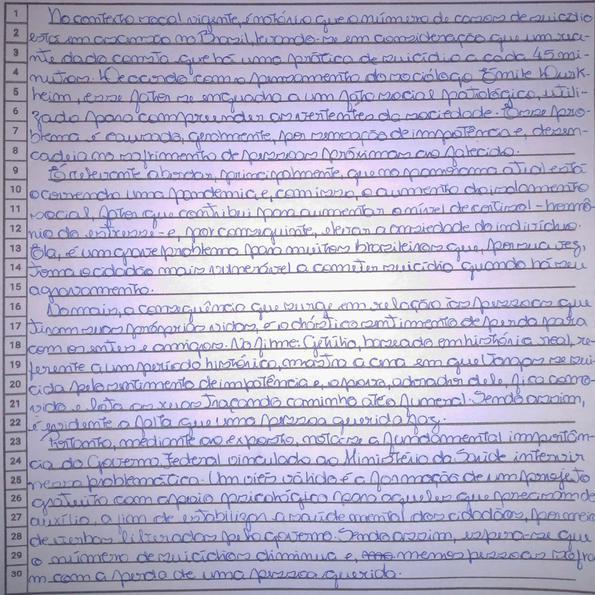 No contexto social vigente, é notório que o número de casos de suicídio
está em ascensão no Brasil, levando-se em consideração que um rece-
nte dado consta que há uma prática de suicídio a cada 45 mi-
nutos. De acordo com o pensamento do sociólogo Émile Durk-
heim, esse fator se enquadra a um fato social patológico, utili-
zado para compreender as vertentes da sociedade. Esse pro-
blema é causado, geralmente, por sensação de impotência e, desen-
cadeia no sofrimento de pessoas próximas ao falecido.
É relevante abordar, principalmente, que no panorama atual está
ocorrendo uma pandemia, e, com isso, o aumento do isolamento
social, fator que contribui para aumentar o nível de cortisol - hormô-
nio do estresse - e, por conseguinte, elevar a ansiedade do indivíduo.
Ela, é um grave problema para muitos brasileiros que, por sua vez,
torna o cidadão mais vulnerável a cometer suicídio quando há seu
agravamento.
Ademais, a consequência que surge em relação às pessoas que
tiram suas próprias vidas, é o drástico sentimento de perda para
com os entes e amigos. No filme: Getúlio, baseado em história real, re-
ferente a um período histórico, mostra a cena em que Vargas se sui-
cida pelo sentimento de impotência e, o povo, admirador dele, fica como-
vido e lota as ruas traçando caminho até o funeral. Sendo assim,
é evidente a falta que uma pessoa querida faz.
Portanto, mediante ao exposto, nota-se a fundamental importân-
cia do Governo Federal vinculado ao Ministério da Saúde intervir
nessa problemática. Um viés válido é a formação de um projeto
gratuito com apoio psicológico para aqueles que precisam de
auxílio, a fim de estabilizar a saúde mental dos cidadãos, por meio
de verbas liberadas pelo governo. Sendo assim, espera-se que
o número de suicídios diminua e, menos pessoas sofra-
m com a perda de uma pessoa querida.